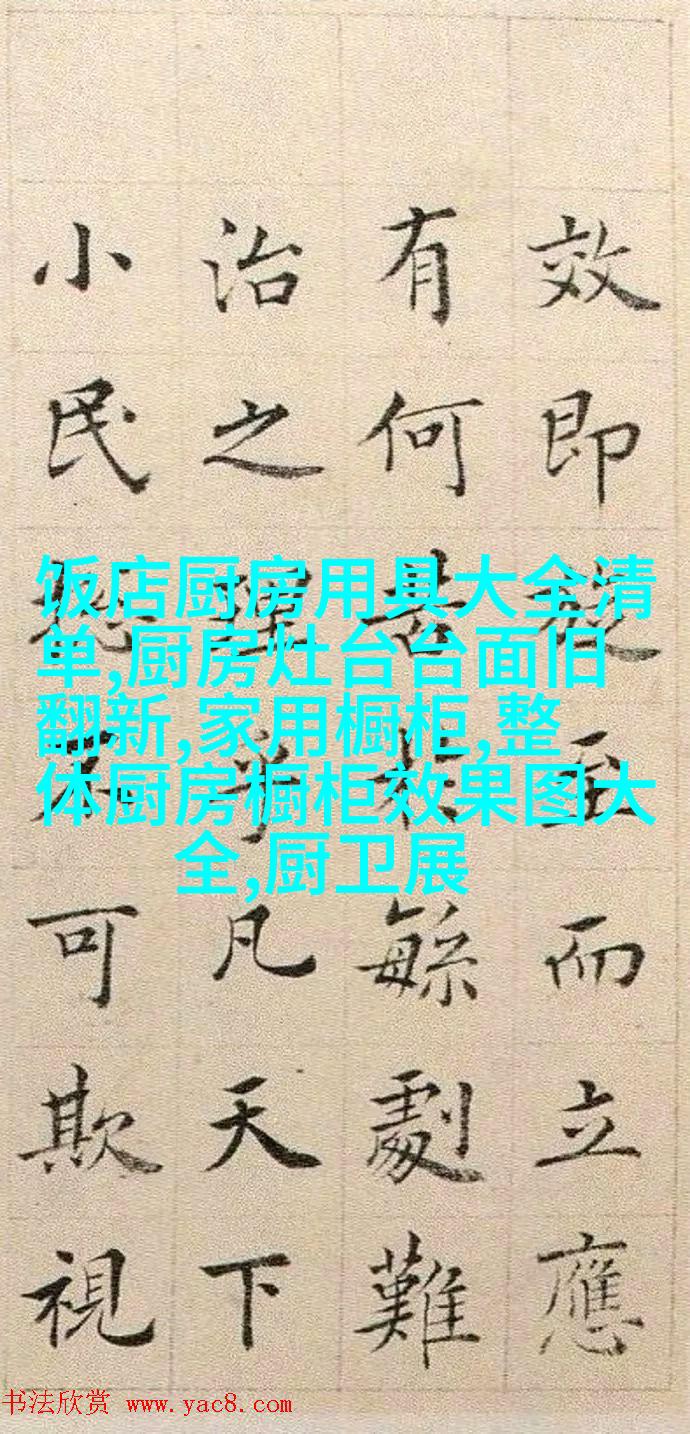 效即至而立應
有何緐劇難
治之凡天下
小民可欺視
饭店厨房用具大全清
单,厨房灶台台面旧
翻新,家用橱柜,整
体厨房橱柜效果图大
全,厨卫展
书法欣赏 www.yac8.com